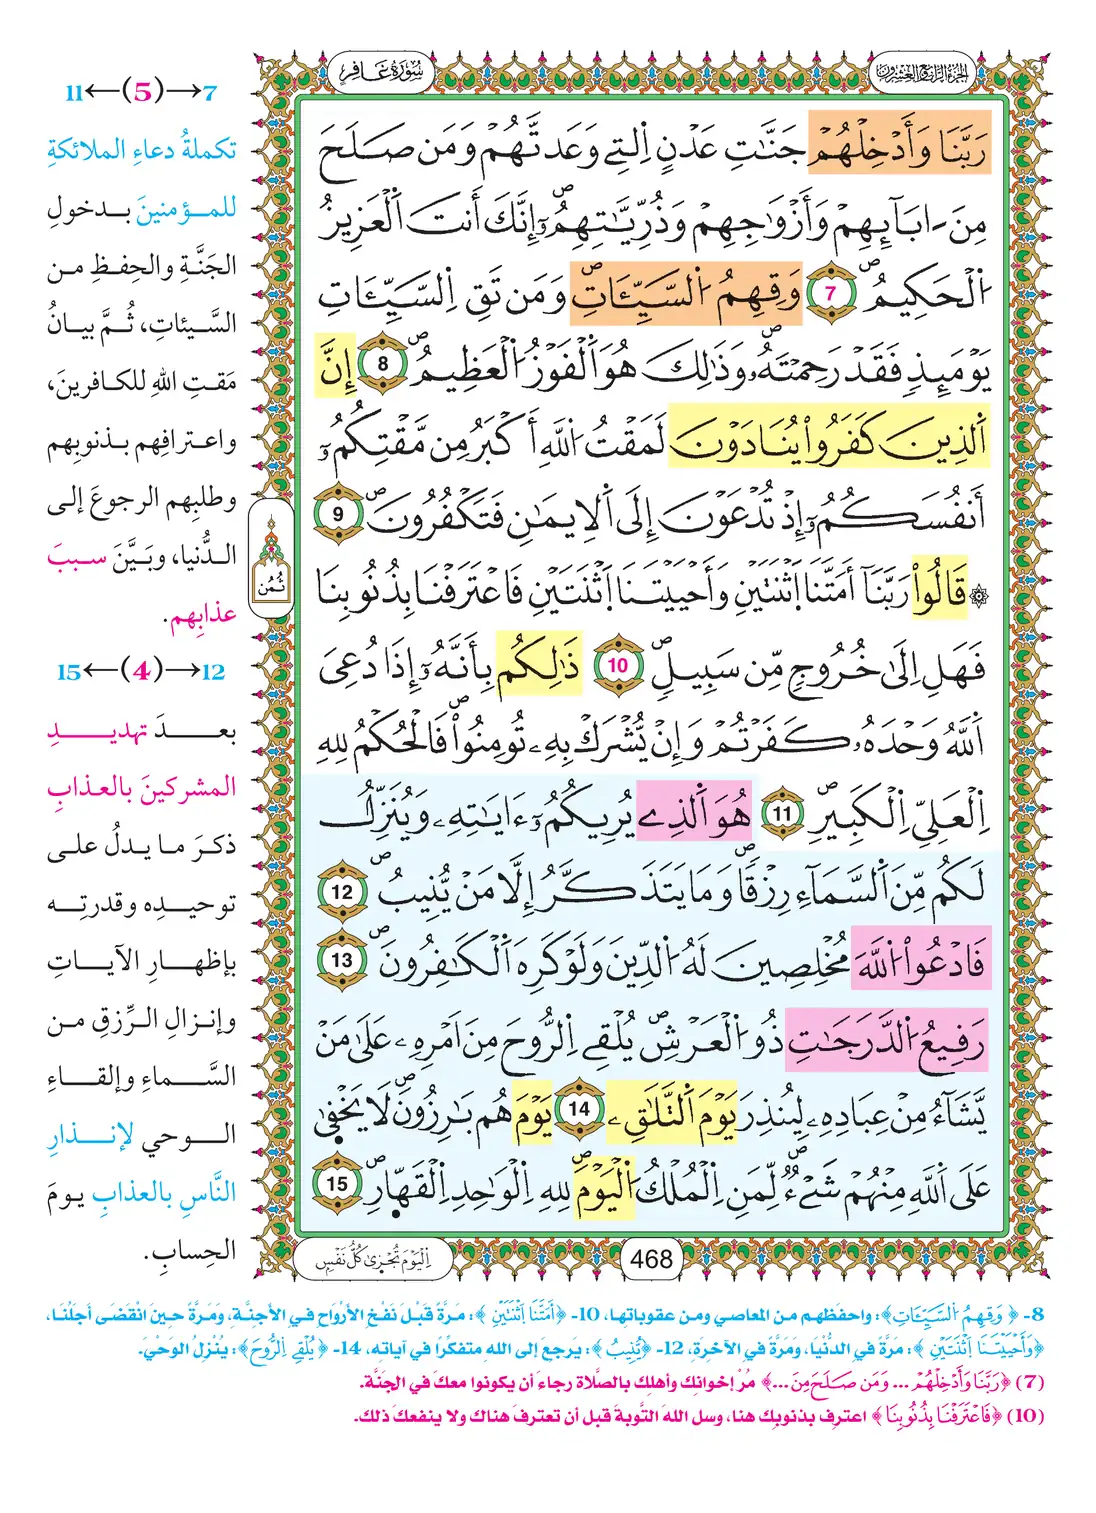 سُورَةُ غَافِرٍ
الجزء الرابع والعشرون
رَبَّنَا وَأَدْخِلْهُمْ جَنَّٰتِ عَدْنٍ اِ۬لتِے وَعَدتَّهُمْ وَمَن صَلَحَ
مِنَ ءَابَآئِهِمْ وَأَزْوَٰجِهِمْ وَذُرِّيَّٰتِهِمُۥٓ إِنَّكَ أَنتَ اَ۬لْعَزِيزُ
اُ۬لْحَكِيمُ 7 وَقِهِمُ اُ۬لسَّيِّـَٔاتِ وَمَن تَقِ اِ۬لسَّيِّـَٔاتِ
يَوْمَئِذٍ فَقَدْ رَحِمْتَهُۥ وَذَٰلِكَ هُوَ اَ۬لْفَوْزُ اُ۬لْعَظِيمُ 8 إِنَّ
اَ۬لذِينَ كَفَرُواْ يُنَادَوْنَ لَمَقْتُ اُ۬للَّهِ أَكْبَرُ مِن مَّقْتِكُمُۥٓ
أَنفُسَكُمُۥٓ إِذْ تُدْعَوْنَ إِلَى اَ۬لِايمَٰنِ فَتَكْفُرُونَ 9
۞ قَالُواْ رَبَّنَآ أَمَتَّنَا اَ۪ثْنَتَيْنِ وَأَحْيَيْتَنَا اَ۪ثْنَتَيْنِ فَاعْتَرَفْنَا بِذُنُوبِنَا
فَهَلِ اِلَىٰ خُرُوجٍ مِّن سَبِيلٍ 10 ذَٰلِكُم بِأَنَّهُۥٓ إِذَا دُعِيَ
اَ۬للَّهُ وَحْدَهُۥ كَفَرْتُمْ وَإِنْ يُّشْرَكْ بِهِۦ تُومِنُواْ فَالْحُكْمُ لِلهِ
اِ۬لْعَلِيِّ اِ۬لْكَبِيرِ 11 هُوَ اَ۬لذِے يُرِيكُمُۥٓ ءَايَٰتِهِۦ وَيُنَزِّلُ
لَكُم مِّنَ اَ۬لسَّمَآءِ رِزْقًا وَمَا يَتَذَكَّرُ إِلَّا مَنْ يُّنِيبُ 12
فَادْعُواْ اُ۬للَّهَ مُخْلِصِينَ لَهُ اُ۬لدِّينَ وَلَوْ كَرِهَ اَ۬لْكَٰفِرُونَ 13
رَفِيعُ اُ۬لدَّرَجَٰتِ ذُو اُ۬لْعَرْشِ يُلْقِے اِ۬لرُّوحَ مِنَ اَمْرِهِۦ عَلَىٰ مَنْ
يَّشَآءُ مِنْ عِبَادِهِۦ لِيُنذِرَ يَوْمَ اَ۬لتَّلَٰقِۦ 14 يَوْمَ هُم بَٰرِزُونَ لَا يَخْفَىٰ
عَلَى اَ۬للَّهِ مِنْهُمْ شَےْءٌ لِّمَنِ اِ۬لْمُلْكُ اُ۬لْيَوْمَ لِلهِ اِ۬لْوَٰحِدِ اِ۬لْقَهَّارِ 15
اِ۬لْيَوْمَ تُجْزَىٰ كُلُّ نَفْسٍ
468
ثُمُن
7→(5)←11
تكملةُ دعاءِ الملائكةِ
للمؤمنينَ بدخولِ
الجَنَّةِ والحِفظِ من
السَّيئاتِ، ثُمَّ بيانُ
مَقتِ اللهِ للكافرينَ،
واعترافِهم بذنوبِهم
وطلبِهم الرجوعَ إلى
الدُّنيا، وبَيَّنَ سببَ
عذابِهم.
12→(4)←15
بعدَ تهديدِ
المشركينَ بالعذابِ
ذكرَ ما يدلُ على
توحيدِه وقدرتِه
بإظهارِ الآياتِ
وإنزالِ الرِّزقِ من
السَّماءِ وإلقاءِ
الوحي لإنذارِ
النَّاسِ بالعذابِ يومَ
الحِسابِ.
8- ﴿وَقِهِمُ اُ۬لسَّيِّـَٔاتِ﴾: واحفظهم من المعاصي ومن عقوباتها، 10- ﴿أَمَتَّنَا اَ۪ثْنَتَيْنِ﴾: مَرَّةً قَبْلَ نَفْخِ الأرْوَاحِ فِي الأجِنَّةِ، وَمَرَّةً حِينَ انْقَضَى أجَلُنَا،
﴿وَأَحْيَيْتَنَا اَ۪ثْنَتَيْنِ﴾: مَرَّةً فِي الدُّنْيَا، وَمَرَّةً فِي الآخِرَةِ، 12- ﴿يُنِيبُ﴾: يَرجعُ إلى اللهِ متفكِّرًا في آياتِه، 14- ﴿يُلْقِے اِ۬لرُّوحَ﴾: يُنْزِلُ الوَحْيَ.
(7) ﴿رَبَّنَا وَأَدْخِلْهُمْ ... وَمَن صَلَحَ مِنَ ...﴾ مُرْ إخوانك وأهلك بالصَّلاة رجاء أن يكونوا معك في الجَنَّة.
(10) ﴿فَاعْتَرَفْنَا بِذُنُوبِنَا﴾ اعترف بذنوبك هنا، وسل اللهَ التَّوبةَ قبل أن تعترفَ هناك ولا ينفعكَ ذلك.